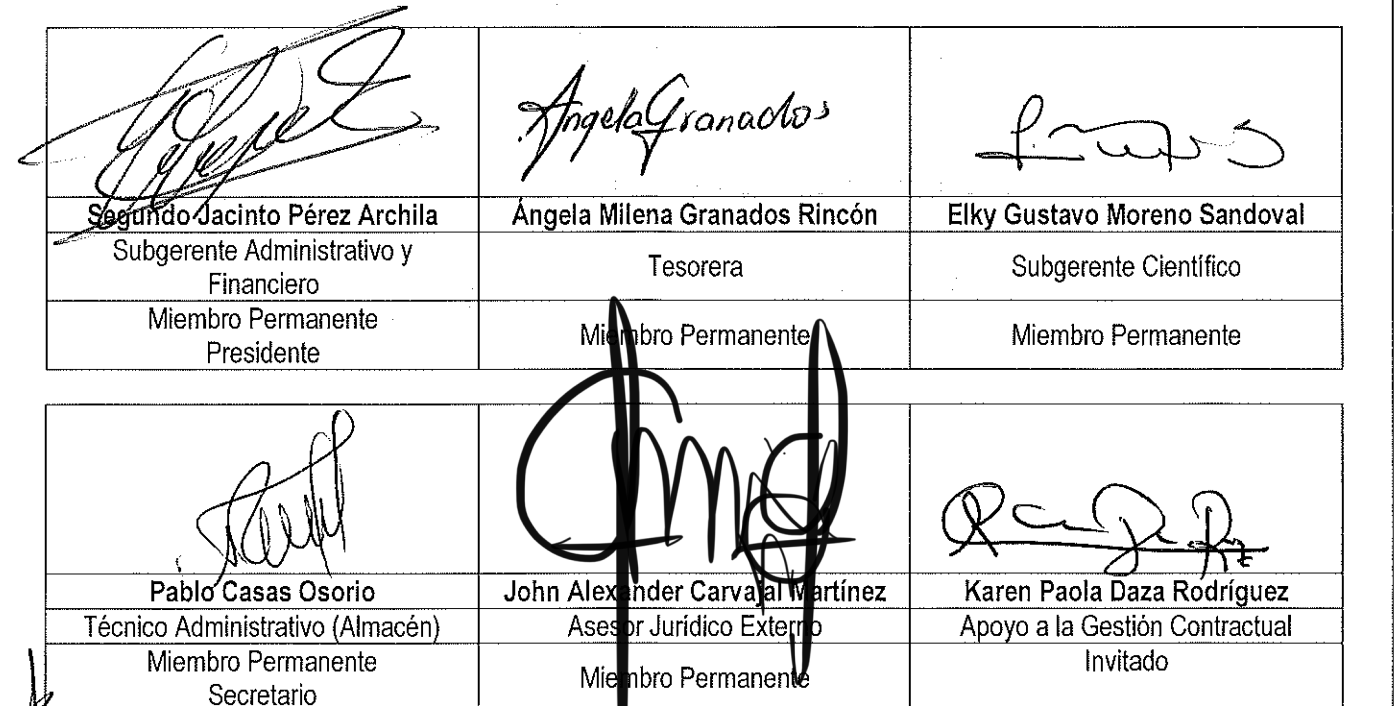 AngelaGranados
Segundo Jacinto Pérez Archila
Ángela Milena Granados Rincón
Elky Gustavo Moreno Sandoval
Subgerente Administrativo y
Financiero
Tesorera
Subgerente Científico
Miembro Permanente
Presidente
Miembro Permanente
Miembro Permanente
Pablo Casas Osorio
John Alexander Carvajal Martínez
Karen Paola Daza Rodríguez
Técnico Administrativo (Almacén)
Asesor Jurídico Externo
Apoyo a la Gestión Contractual
Miembro Permanente
Secretario
Miembro Permanente
Invitado